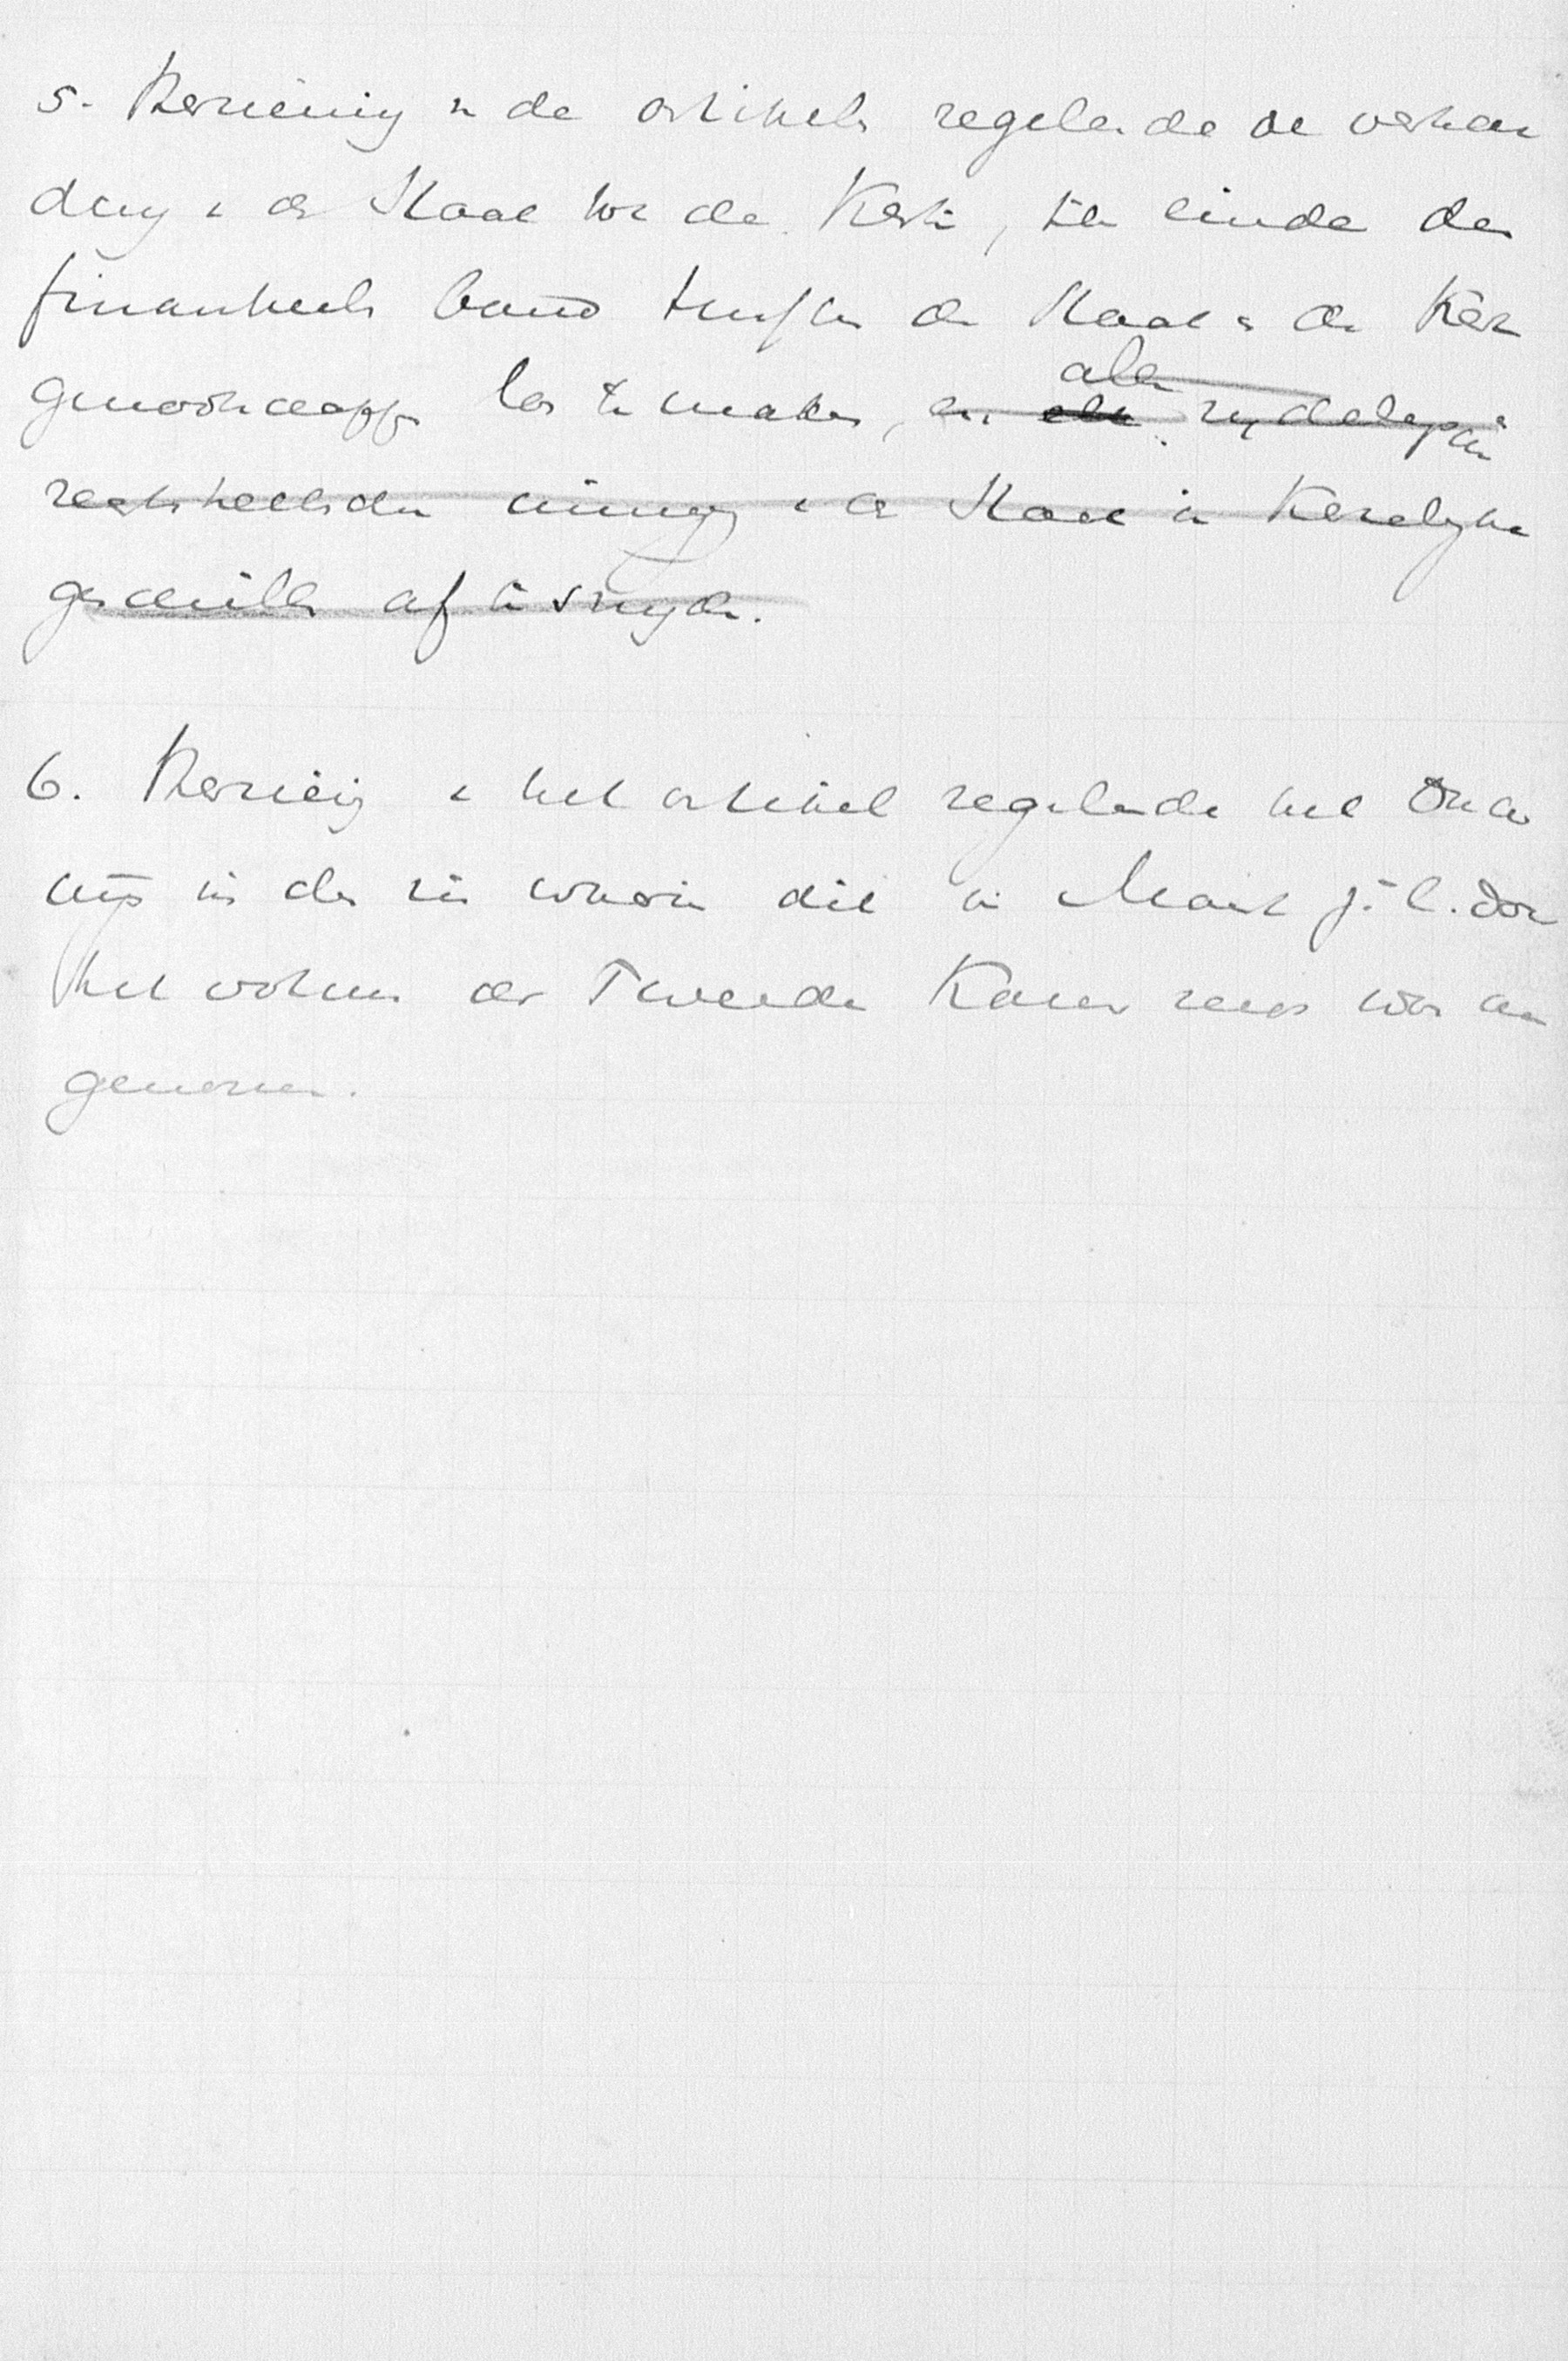 5. Herziening v de artikels regelende de verhou
ding v de Staat tot de Kerk, ten einde den
financieele band tusschen de Staat en de Kerk
genootschappen los te maken, en alle
in de Staat in Kerkelijke
geschillen af te snijden.
6. Herziening v het artikel regelende het Onder
wijs in den zin waarin dit in Maart j.l. door
het votum der Tweede Kamer reeds was aan
genomen.